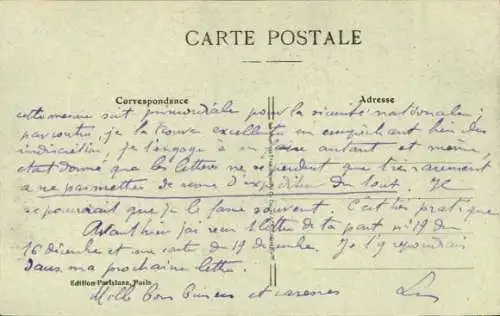 CARTE POSTALE
Correspondance Adresse
cette mesure soit primordiale pour la sécurité nationale;
par contre, je la trouve excellente en empêchant bien des
indiscrétions. Je t'engage à en faire autant et même,
étant donné que les lettres ne se perdent que très rarement
à ne pas mettre de nom d'expéditeur du tout. Il
se pourrait que je le fasse souvent. C'est très pratique
Avant hier j'ai reçu 1 lettre de ta part n° 19 du
16 décembre et une carte du 19 décembre. J'y répondrai
dans ma prochaine lettre.
Edition Parisiana, Paris
Mille bons baisers et caresses